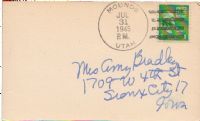 MOUNDS
JUL
31
1945
P.M.
UTAH
Mrs Amy Bradley
1709 W 4th St
Sioux City 17
Iowa